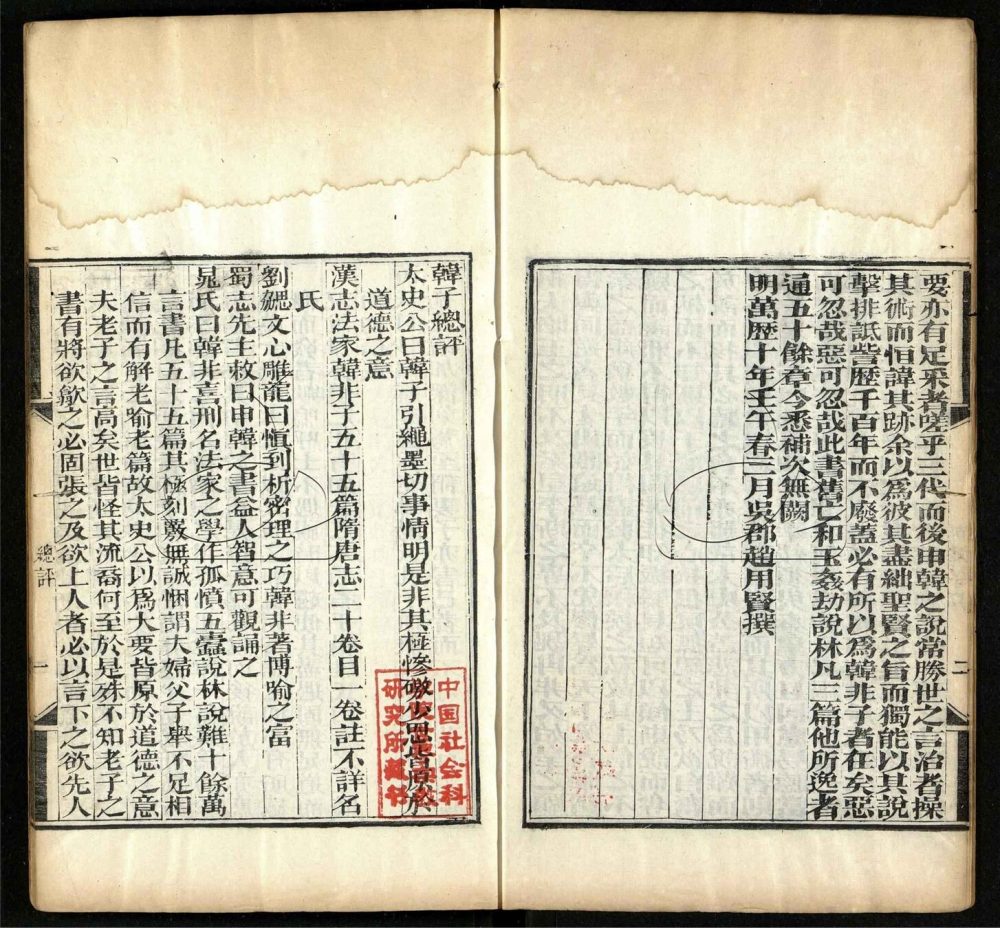 要亦有足采者嗟乎三代而後申韓之說常勝世之言治者操
其術而恒諱其跡余以爲彼其盡絀聖賢之旨而獨能以其說
擊排詆訾歷千百年而不廢蓋必有所以爲韓非子者在矣惡
可忍哉惡可忍哉此書舊亡和玉姦劫說林凡三篇他所逸者
通五十餘章今悉補次無闕
明萬歷十年壬午春三月吳郡趙用賢撰
二
韓子總評
太史公曰韓子引繩墨切事情明是非其極慘礉少恩皆原於
道德之意
漢志法家韓非子五十五篇隋唐志二十卷目一卷註不詳名
氏
劉勰文心雕龍曰慎到析密理之巧韓非著博喻之富
蜀志先主敕曰申韓之書益人智意可觀誦之
晁氏曰韓非喜刑名法家之學作孤憤五蠹說林說難十餘萬
言書凡五十五篇其極刻覈無誠悃謂夫婦父子舉不足相
信而有解老喻老篇故太史公以爲大要皆原於道德之意
夫老子之言高矣世皆怪其流裔何至於是殊不知老子之
書有將欲歙之必固張之及欲上人者必以言下之欲先人
總評
一
中国社会科
研究所藏书